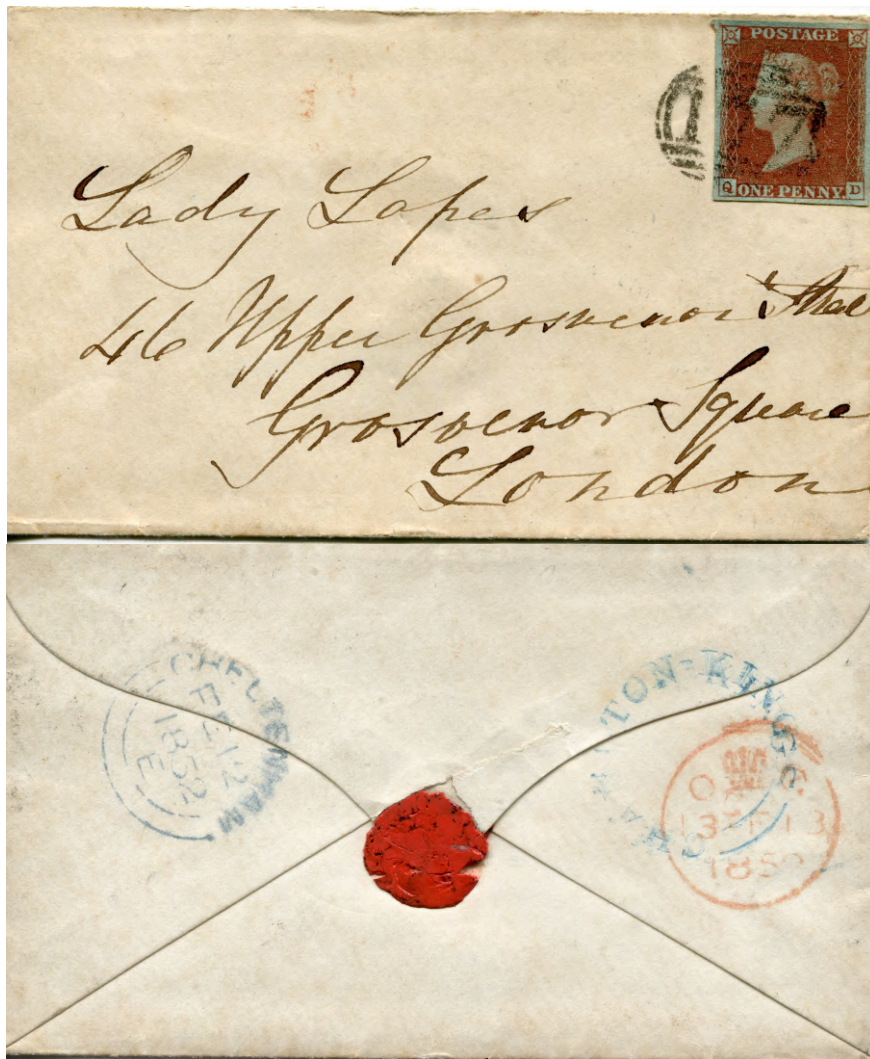 POSTAGE
177
Q ONE PENNY. D
Lady Lopes
46 Upper Grosvenor Stree
Grosvenor Square
London
CHELTENHAM
FE 12
1852
E
CHARLTON-KINGS
13 FE 13
1852